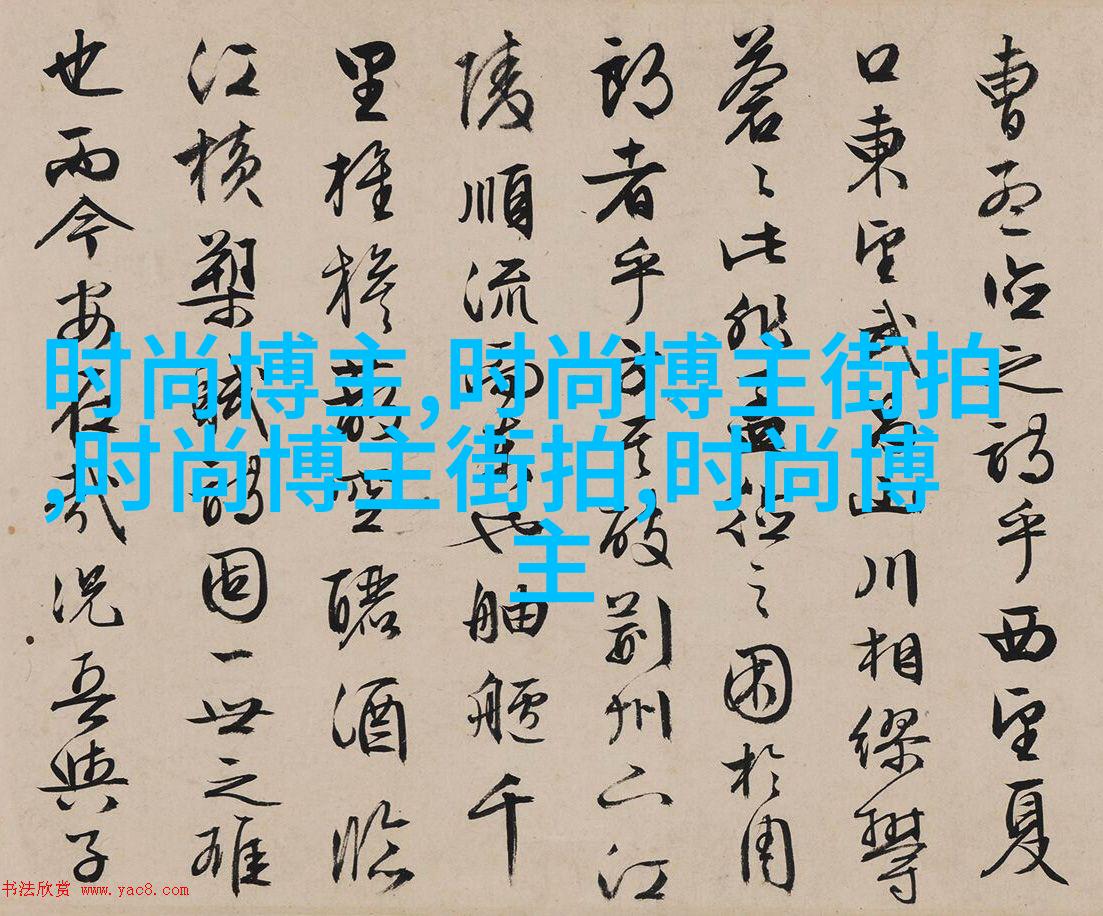 曹孟德之詩乎西望夏
口東望武昌山川相繆鬱
蒼〻此非孟德之困於周
郎者乎方其破荊州下江
陵順流而東也舳艫千
里旌旗蔽空釃酒臨
江橫槊賦詩固一世之雄
也而今安在哉況吾與子
时尚博主,时尚博主街拍
,时尚博主街拍,时尚博
主
书法欣赏 www.yac8.com